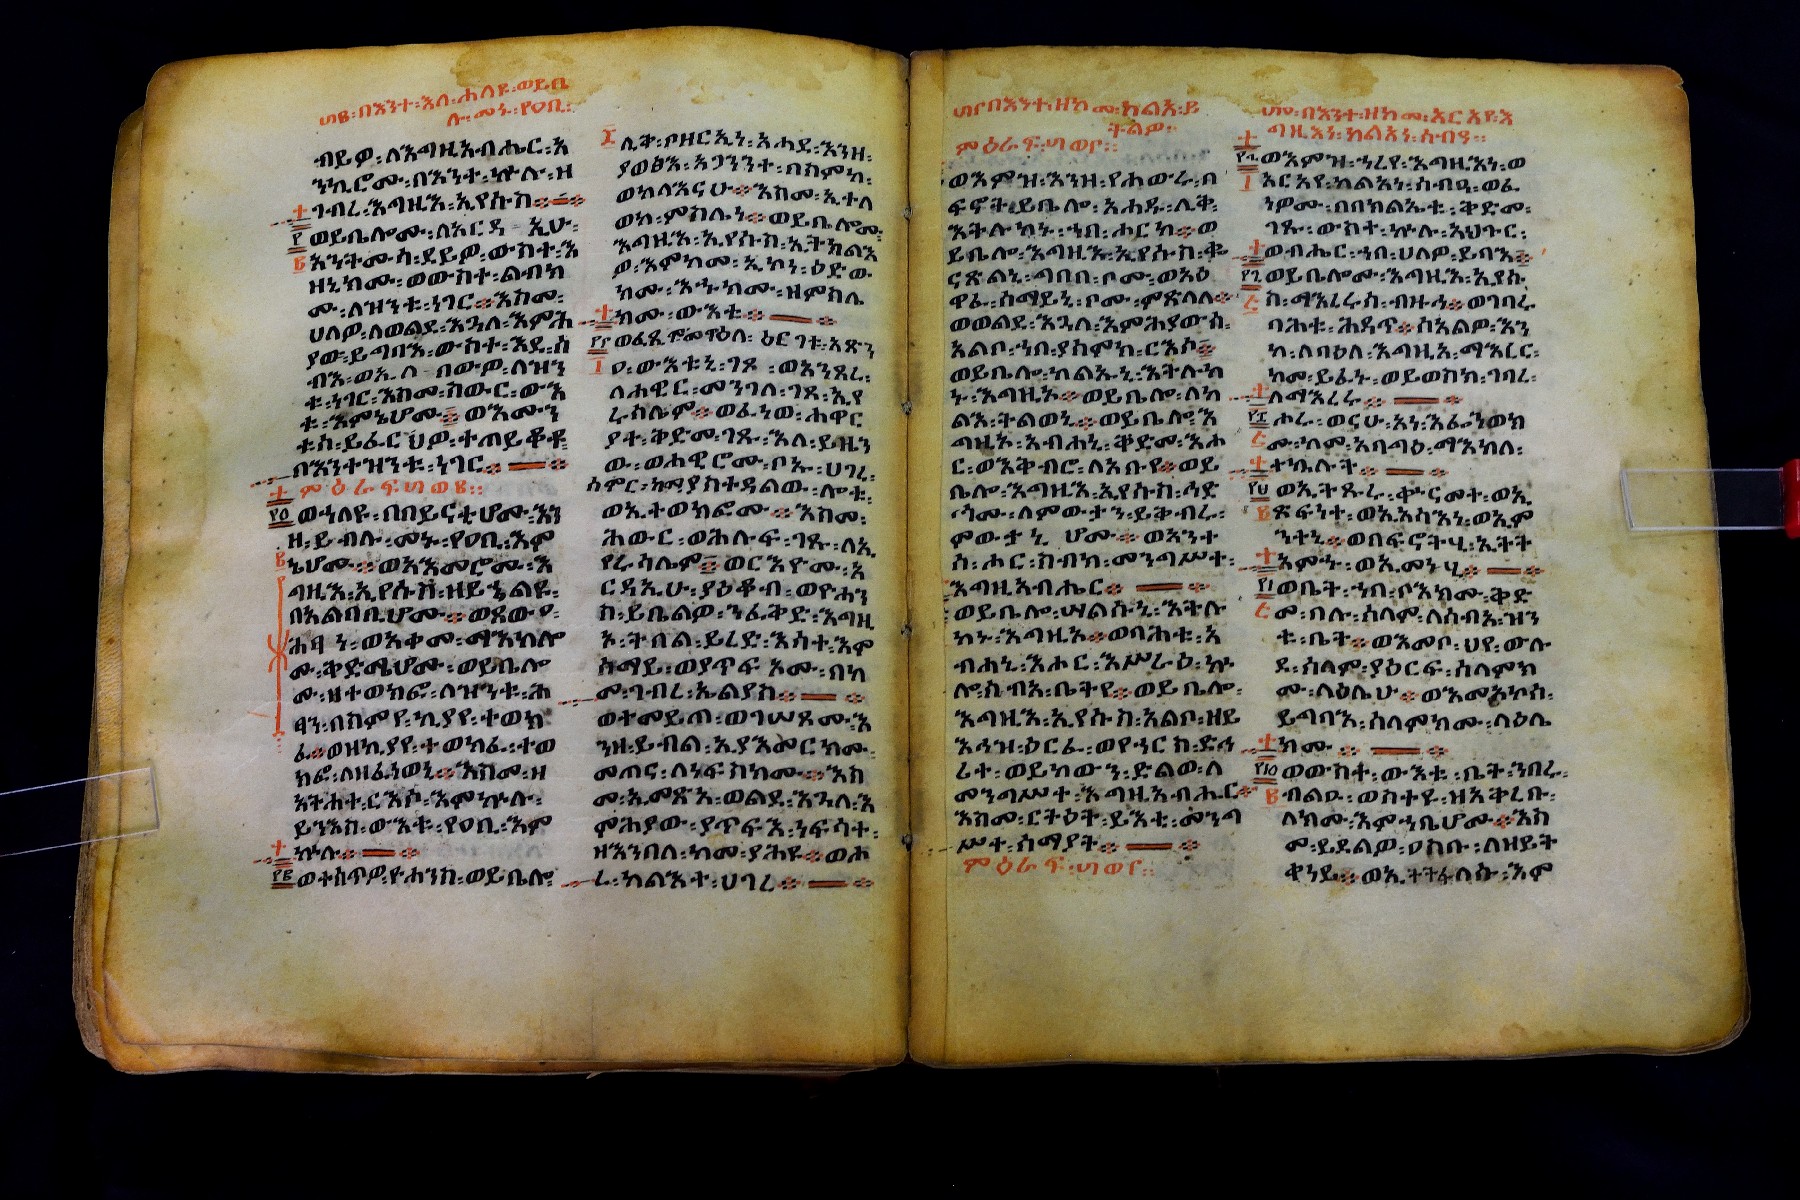 ፴፪፡በእንተ፡እለ፡ሐለዩ፡ወይቤ
ሉ፡መኑ፡የዐቢ፡
ብይዎ፡ለእግዚአብሔር፡አ
ንኪሮሙ፡በእንተ፡ኵሉ፡ዘ
ገብረ፡እግዚእ፡ኢየሱስ፨
ወይቤሎሙ፡ለአርዳ ኢሁ፡
አንትሙሰ፡ደይዎ፡ውስተ፡እ
ዘኒክሙ፡ወውስተ፡ልብክ
ሙ፡ለዝንቱ፡ነገር፨እስመ፡
ሀለዎ፡ለወልደ፡እጓለ፡እምሕ
ያው፡ይግባእ፡ውስተ፡እደ፡ሰ
ብእ፡ወኢለ በውዎ፡ለዝን
ቱ፡ነገር፡እስመ፡ስውር፡ውእ
ቱ፡እምኔሆሙ፨ወእሙን
ቱሰ፡ይፈርህዎ፡ተጠይቆቶ፡
በእንተዝንቱ፡ነገር፨
ምዕራፍ፡፴ወ፪፡
ወኀለዩ፡በበይናቲሆሙ፡እን
ዘ፡ይብሉ፡መኑ፡የዐቢ፡እም
ኔሆሙ፨ወአእመሮሙ፡እ
ግዚእ፡ኢየሱስ፡ዘይኄልዩ፡
በአልባቢሆሙ፨ወጸውዐ፡
ሕፃነ፡ወአቀመ፡ማእከሎ
ሙ፡ቅድሜሆሙ፡ወይቤሎ
ሙ፡ዘተወክፎ፡ለዝንቱ፡ሕ
ፃን፡በስምየ፡ኪያየ፡ተወክ
ፈ፨ወዘኪያየ፡ተወክፈ፡ተወ
ክፎ፡ለዘፈነወኒ፨እስመ፡ዘ
አትሐተ፡ርእሶ፡እምኵሉ፡
ይንእስ፡ውእቱ፡የዐቢ፡እም
ኵሉ፨
ወተሰጥዎ፡ዮሐንስ፡ወይቤሎ፡
ሊቅ፡ቦዘርኢነ፡አሐደ፡እንዘ፡
ያወፅእ፡አጋንንተ፡በስምከ፡
ወከላእናሁ፨እስመ፡ኢተለ
ወከ፡ምስሌነ፨ወይቤሎሙ፡
እግዚእ፡ኢየሱስ፡ኢትክልእ
ዎ፡እምከመ፡ኢኮነ፡ዕድው
ክሙ፡እኁክሙ፡ዘምስሌ
ክሙ፡ውእቱ፨
ወፈጺሞ፡መዋዕለ፡ዕርገቱ፡አጽን
ዐ፡ውእቱኒ፡ገጾ፡ወአንጸረ፡
ለሐዊር፡መንገለ፡ገጹ፡ኢየ
ሩሳሌም፨ወፈነወ፡ሐዋር
ያተ፡ቅድመ፡ገጹ፡እለ፡ይዜን
ው፡ወሐዊሮሙ፡ቦኡ፡ሀገረ፡
ሰምር፡ከመ፡ያስተዳልው፡ሎቱ፡
ወኢተወክፎሙ፨እስመ፡
ሕውር፡ወሕሉፍ፡ገጹ፡ለኢ
የሩሳሌም፨ወርእዮሙ፡አ
ርዳኢሁ፡ያዕቆብ፡ወዮሐን
ስ፡ይቤልዎ፡ንፈቅድ፡እግዚ
ኦ፡ትበል፡ይረድ፡እሳተ፡እም
ሰማይ፡ወያጥፍኦሙ፡በከ
መ፡ገብረ፡ኤልያስ፨
ወተመይጠ፡ወገሠጾሙ፡እ
ንዘ፡ይብል፡ኢያእመርክሙ፡
መጠና፡ለነፍስክሙ፨እስ
መ፡ኢመጽአ፡ወልደ፡እጓለ፡እ
ምሕያው፡ያጥፍእ፡ነፍሳተ፡
ዘእንበለ፡ከመ፡ያሕዩ፨ወሖ
ሩ፡ካልእተ፡ሀገረ፨
፴፫በእንተ፡ዘከመ፡ከልአ፡ይ
ትልዎ፡
ምዕራፍ፡፴ወ፫፡
ወእምዝ፡እንዘ፡የሐውሩ፡በ
ፍኖት፡ይቤሎ፡አሐዱ፡ሊቅ፡
እትሉከኑ፡ኀበ፡ሖርከ፨ወ
ይቤሎ፡እግዚእ፡ኢየሱስ፡ቈ
ናጽልኒ፡ግበበ፡ቦሙ፡ወአዕ
ዋፈ፡ሰማይኒ፡ቦሙ፡ምጽላለ፨
ወወልደ፡እጓለ፡እምሕያውሰ፡
አልቦ፡ኀበ፡ያሰምክ፡ርእሶ፨
ወይቤሎ፡ካልኡኒ፡እትሉከ
ኑ፡እግዚኦ፨ወይቤሎ፡ለካ
ልእ፡ትልወኒ፨ወይቤሎ፡እ
ግዚኦ፡አብሐኒ፡ቅድመ፡እሖ
ር፡ወእቅብሮ፡ለአቡየ፨ወይ
ቤሎ፡እግዚእ፡ኢየሱስ፡ኅድ
ጎሙ፡ለምውታን፡ይቅብሩ፡
ምውታኒሆሙ፨ወአንተ
ሰ፡ሖር፡ስብክ፡መንግሥተ፡
እግዚአብሔር፨
ወይቤሎ፡ሣልሱኒ፡እትሉ
ከኑ፡እግዚኦ፨ወባሕቱ፡አ
ብሐኒ፡እሖር፡እሥራዕ፡ኵ
ሎ፡ሰብአ፡ቤትየ፨ወይቤሎ፡
እግዚእ፡ኢየሱስ፡አልቦ፡ዘይ
እኅዝ፡ዕርፈ፡ወየኀርስ፡ድኅ
ሪተ፡ወይከውን፡ድልወ፡ለ
መንግሥተ፡እግዚአብሔር፨
እስመ፡ርትዕት፡ይእቲ፡መንግ
ሥተ፡ሰማያት፨
ምዕራፍ፡፴ወ፫፡
፴፬፡በእንተ፡ዘከመ፡አርአየ፡እ
ግዚእነ፡ካልአነ፡ሰብዓ፡
ወእምዝ፡ኀረየ፡እግዚእነ፡ወ
አርአየ፡ካልአነ፡ሰብዓ፡ወፈ
ነዎሙ፡በበክልኤቱ፡ቅድመ፡
ገጹ፡ውስተ፡ኵሉ፡አህጉር፡
ወብሔር፡ኀበ፡ሀለዎ፡ይባእ፨
ወይቤሎሙ፡እግዚእ፡ኢየሱ
ስ፡ማእረሩሰ፡ብዙኅ፨ወገባሩ፡
ባሕቱ፡ሕዳጥ፨ሰአልዎ፡እን
ከ፡ለባዕለ፡እግዚአ፡ማእረር፡
ከመ፡ይፈኑ፡ወይወስክ፡ገባረ፡
ለማእረሩ፨
ሑሩ፡ወናሁ፡አነ፡እፌንወክ
ሙ፡ከመ፡አባግዕ፡ማእከለ፡
ተኵላት፨
ወኢትጹሩ፡ቍናመተ፡ወኢ
ጽፍነተ፡ወኢአስእነ፡ወኢም
ንተኒ፨ወበፍኖትሂ፡ኢትት
አምኁ፡ወኢመነሂ፨
ወቤት፡ኀበ፡ቦእክሙ፡ቅድ
መ፡በሉ፡ሰላም፡ለሰብአ፡ዝን
ቱ፡ቤት፨ወእመቦ፡ህየ፡ውሉ
ደ፡ሰላም፡ያዕርፍ፡ሰላምክ
ሙ፡ላዕሌሁ፨ወእመአኮሰ፡
ይግባእ፡ሰላምክሙ፡ላዕሌ
ክሙ፨
ወውስተ፡ውእቱ፡ቤት፡ንበሩ፡
ብልዑ፡ወስተዩ፡ዘአቅረቡ፡
ለክሙ፡እምኀቤሆሙ፨እስ
መ፡ይደልዎ፡ዐስቡ፡ለዘይት
ቀነይ፨ወኢትትፋለሱ፡እም